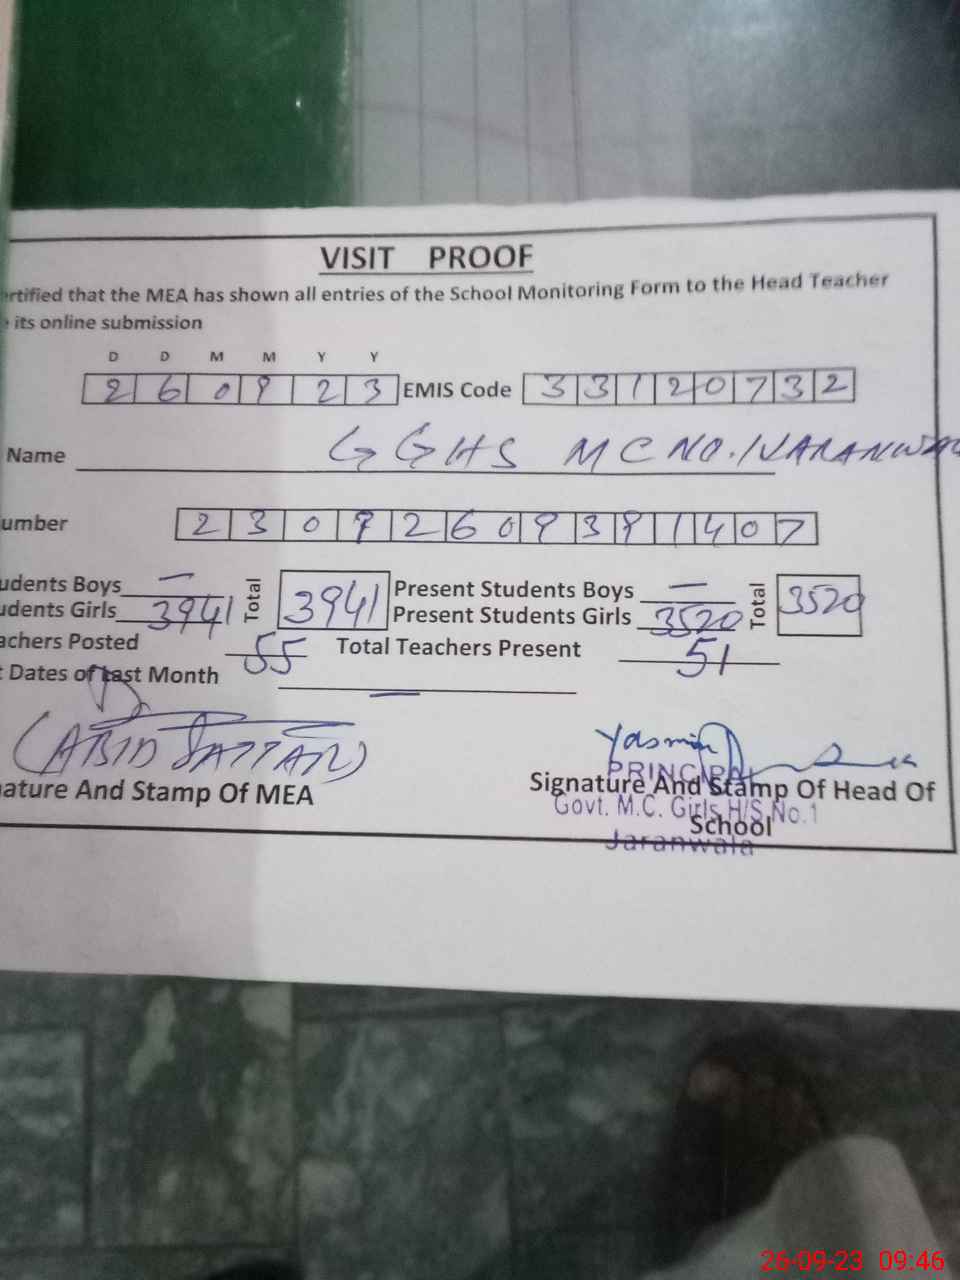 VISIT PROOF
ertified that the MEA has shown all entries of the School Monitoring Form to the Head Teacher
its online submission
D D M M Y Y
2 6 0 9 2 3 EMIS Code 3 3 1 2 0 7 3 2
Name GGHS MC NO.1 JARANWAL
umber 2 3 0 9 2 6 0 9 3 9 1 4 0 7
udents Boys — Total 3941 Present Students Boys — Total 3520
udents Girls 3941 Present Students Girls 3520
achers Posted 55 Total Teachers Present 51
t Dates of Last Month —
(ABID SATTAR) Yasmin
PRINCIPAL
nature And Stamp Of MEA Signature And Stamp Of Head Of
Govt. M.C. Girls H/S No.1
School
Jaranwala
26-09-23 09:46